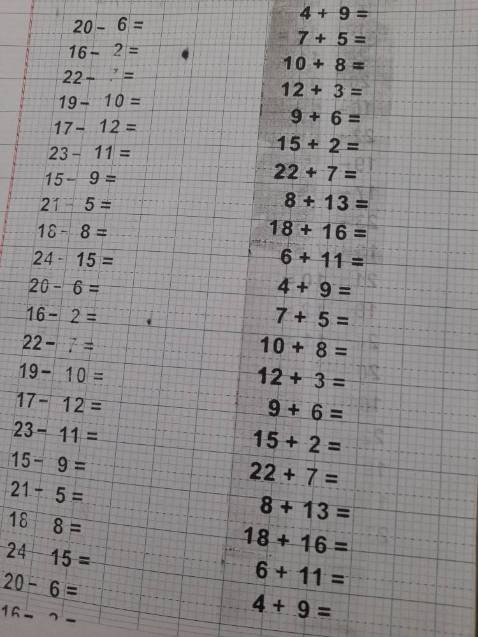 20- 6=
16- 2=
22- =
19- 10=
17- 12=
23- 11=
15- 9=
21- 5=
18- 8=
24- 15=
20- 6=
16- 2=
22- 7=
19- 10=
17- 12=
23- 11=
15- 9=
21- 5=
18 8=
24 15=
20- 6=
16-
4 + 9=
7 + 5=
10 + 8=
12 + 3=
9 + 6=
15 + 2=
22 + 7=
8 + 13=
18 + 16=
6 + 11=
4 + 9=
7 + 5=
10 + 8=
12 + 3=
9 + 6=
15 + 2=
22 + 7=
8 + 13=
18 + 16=
6 + 11=
4 + 9=